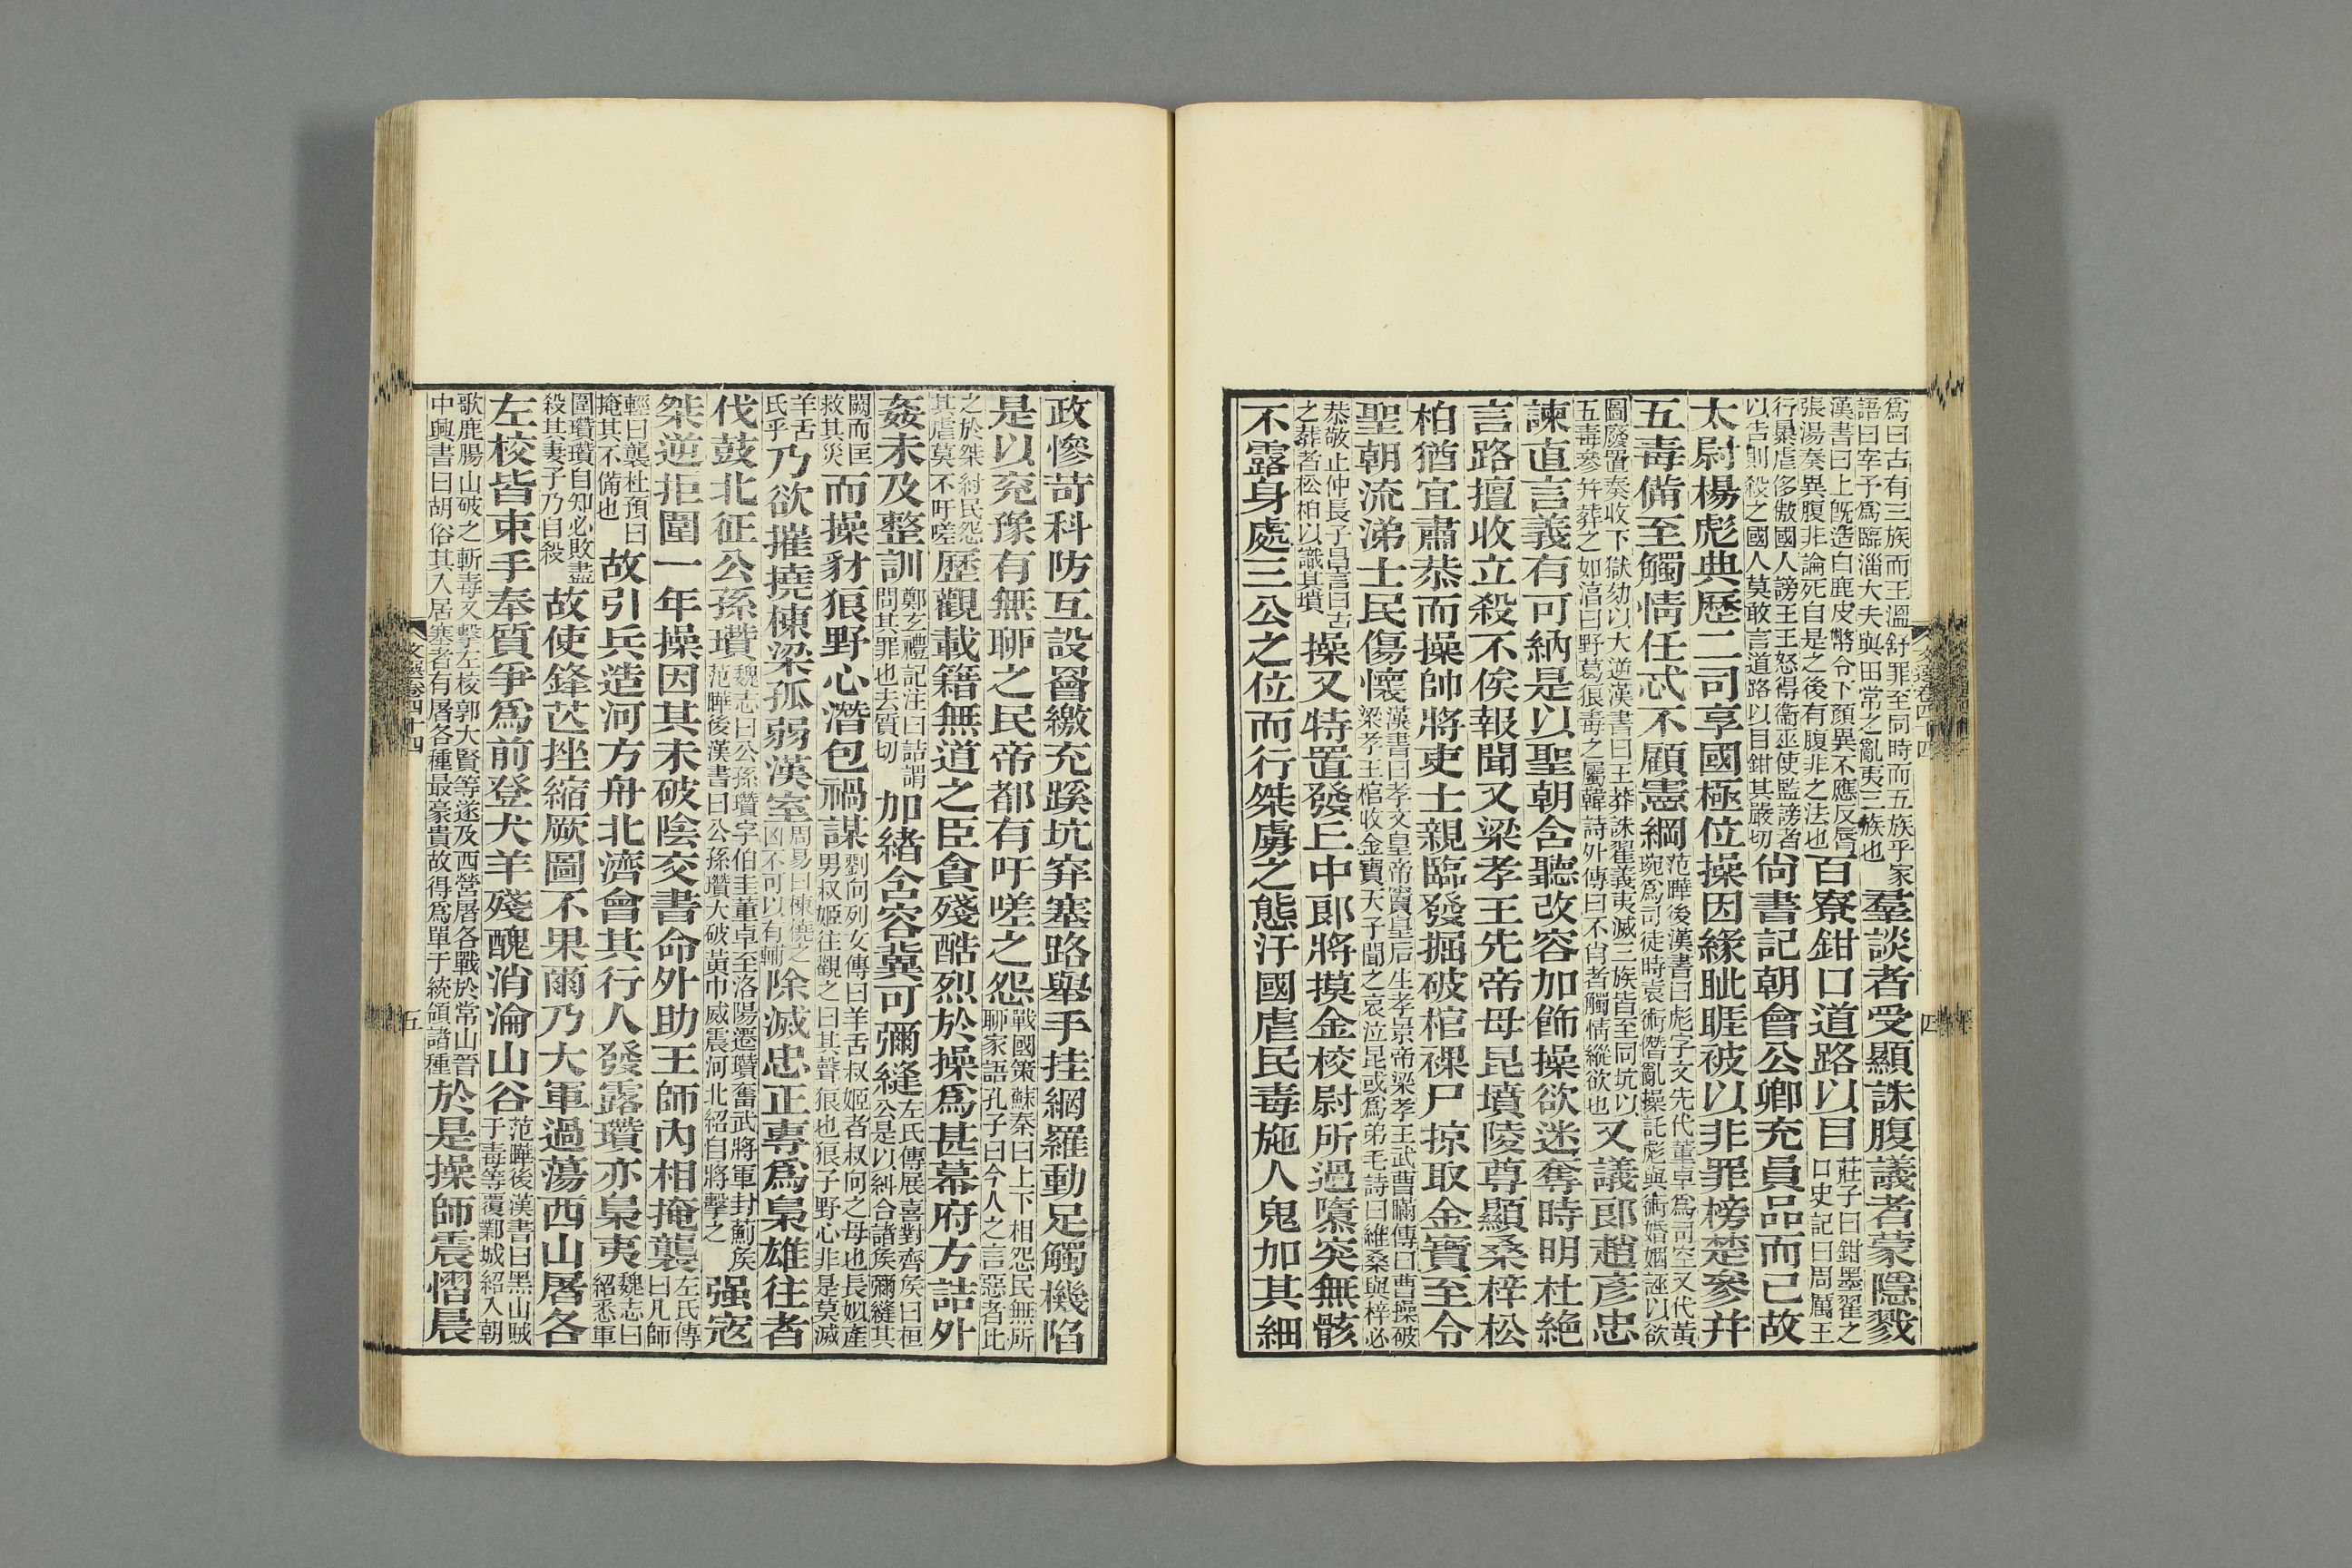 爲曰古有三族而王溫舒罪至同時而五族乎家
語曰宰予爲臨淄大夫與田常之亂夷三族也
羣談者受顯誅腹議者蒙隱戮
漢書曰上旣造白鹿皮幣令下顏異不應反脣
張湯奏異腹非論死自是之後有腹非之法也
百寮鉗口道路以目
莊子曰鉗墨翟之
口史記曰周厲王
行暴虐侈傲國人謗王王怒得衞巫使監謗者
以告則殺之國人莫敢言道路以目鉗其嚴切
尙書記朝會公卿充員品而已故
太尉楊彪典歷二司享國極位操因緣眦睚被以非罪榜楚參幷
五毒備至觸情任忒不顧憲綱
范曄後漢書曰彪字文先代董卓爲司空又代黃
琬爲司徒時袁術僭亂操託彪與術婚姻誣以欲
圖廢置奏收下獄劾以大逆漢書曰王莽誅翟義夷滅三族皆至同坑以
五毒參幷葬之如湻曰野葛狼毒之屬韓詩外傳曰不肖者觸情縱欲也
又議郎趙彥忠
諫直言義有可納是以聖朝含聽改容加飾操欲迷奪時明杜絶
言路擅收立殺不俟報聞又梁孝王先帝母昆墳陵尊顯桑梓松
柏猶宜肅恭而操帥將吏士親臨發掘破棺裸尸掠取金寶至令
聖朝流涕士民傷懷
漢書曰孝文皇帝竇皇后生孝景帝梁孝王武曹瞞傳曰曹操破
梁孝王棺收金寶天子聞之哀泣昆或爲弟毛詩曰維桑與梓必
恭敬止仲長子昌言曰古
之葬者松柏以識其墳
操又特置發丘中郎將摸金校尉所過隳突無骸
不露身處三公之位而行桀虜之態汙國虐民毒施人鬼加其細
文選卷四十四
四
政慘苛科防互設罾繳充蹊坑穽塞路舉手挂網羅動足觸機陷
是以兖豫有無聊之民帝都有吁嗟之怨
戰國策蘇秦曰上下相怨民無所
聊家語孔子曰今人之言惡者比
之於桀紂民怨
其虐莫不吁嗟
歷觀載籍無道之臣貪殘酷烈於操爲甚幕府方詰外
姦未及整訓
鄭玄禮記注曰詰謂
問其罪也去質切
加緖含容冀可彌縫
左氏傳展喜對齊矦曰桓
公是以糾合諸矦彌縫其
闕而匡
救其災
而操豺狼野心潛包禍謀
劉向列女傳曰羊舌叔姬者叔向之母也長姒產
男叔姬往觀之曰其聲狼也狼子野心非是莫滅
羊舌
氏乎
乃欲摧撓棟梁孤弱漢室
周易曰棟僥之
凶不可以有輔
除滅忠正專爲梟雄往者
伐鼓北征公孫瓚
魏志曰公孫瓚字伯圭董卓至洛陽遷瓚奮武將軍封薊矦
范曄後漢書曰公孫瓚大破黃巾威震河北紹自將擊之
强寇
桀逆拒圍一年操因其未破陰交書命外助王師內相掩襲
左氏傳
曰凡師
輕曰襲杜預曰
掩其不備也
故引兵造河方舟北濟會其行人發露瓚亦梟夷
魏志曰
紹悉軍
圍瓚瓚自知必敗盡
殺其妻子乃自殺
故使鋒芒挫縮厥圖不果爾乃大軍過蕩西山屠各
左校皆束手奉質爭爲前登犬羊殘醜消淪山谷
范曄後漢書曰黑山賊
于毒等覆鄴城紹入朝
歌鹿腸山破之斬毒又擊左校郭大賢等遂及西營屠各戰於常山晉
中興書曰胡俗其入居塞者有屠各種最豪貴故得爲單于統領諸種
於是操師震慴晨
文選卷四十四
五